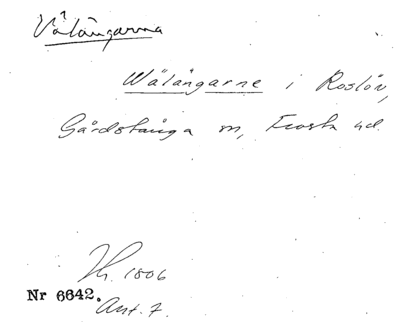 Vålångarna
Wålångarne i Roslöv,
Gårdstånga sn, Frosta hd.
Th. 1806
Nr 6642.
Ant. 7.